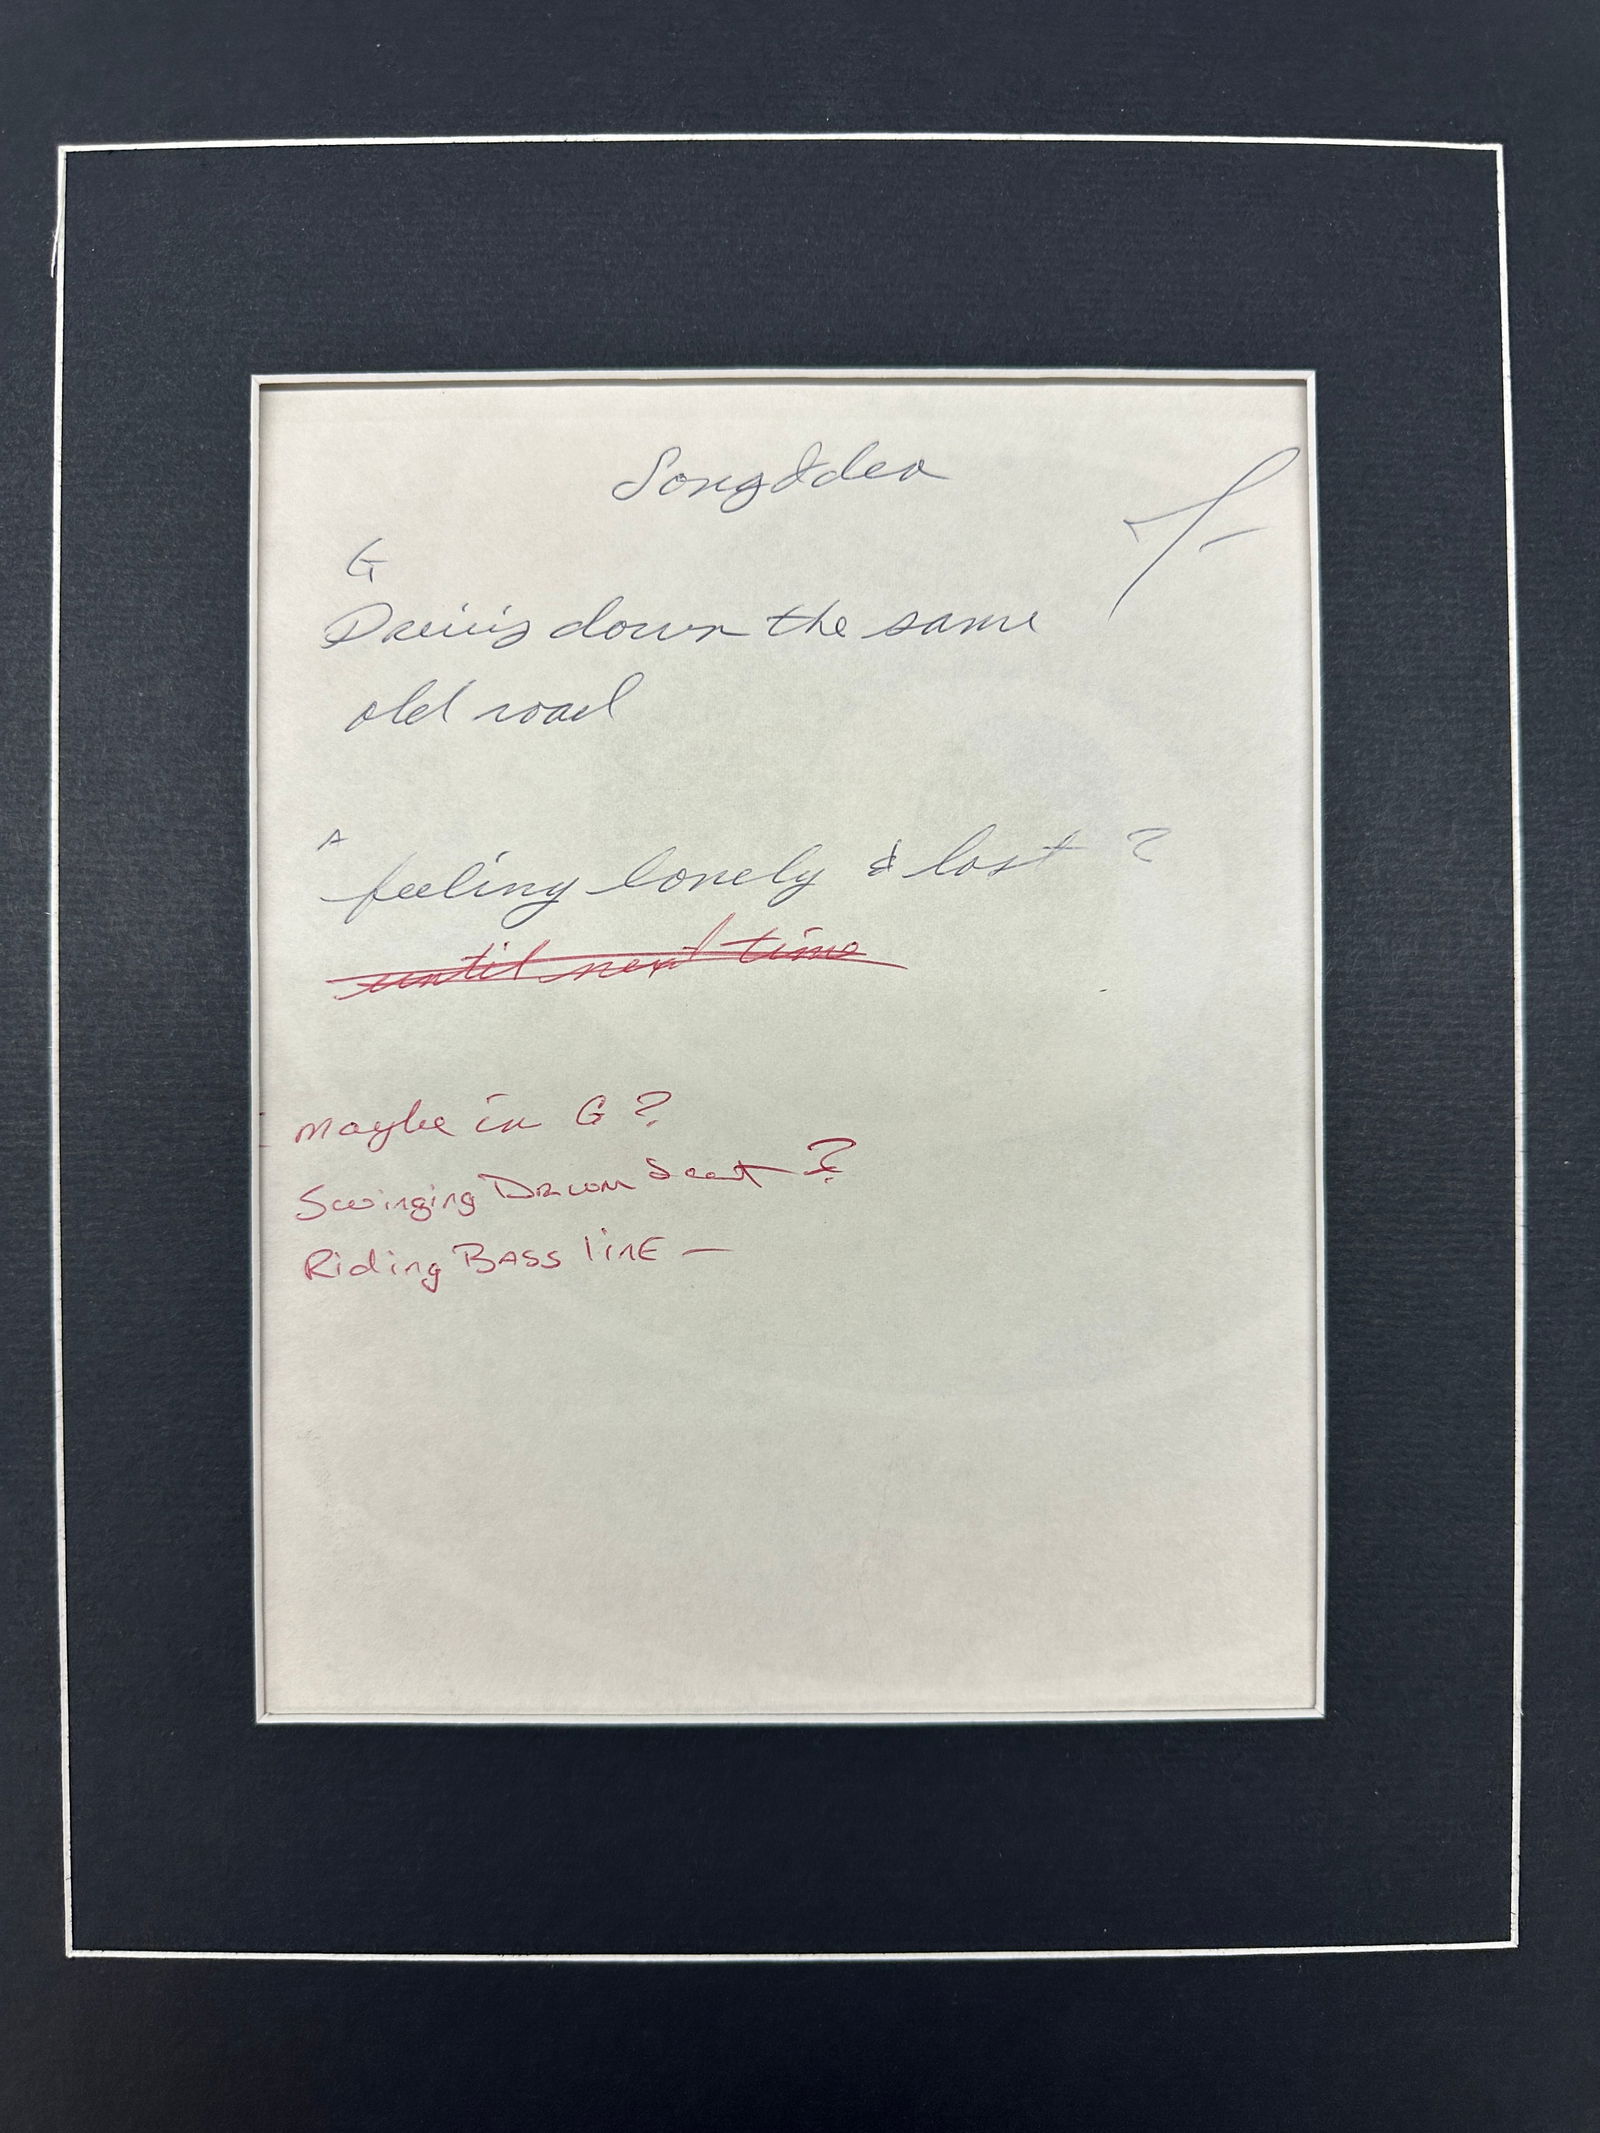 Song Idea
G
Driving down the same
old road
A
feeling lonely & lost ?
until next time
Maybe in G?
Swinging Drum beat ?
Riding BASS liNE —